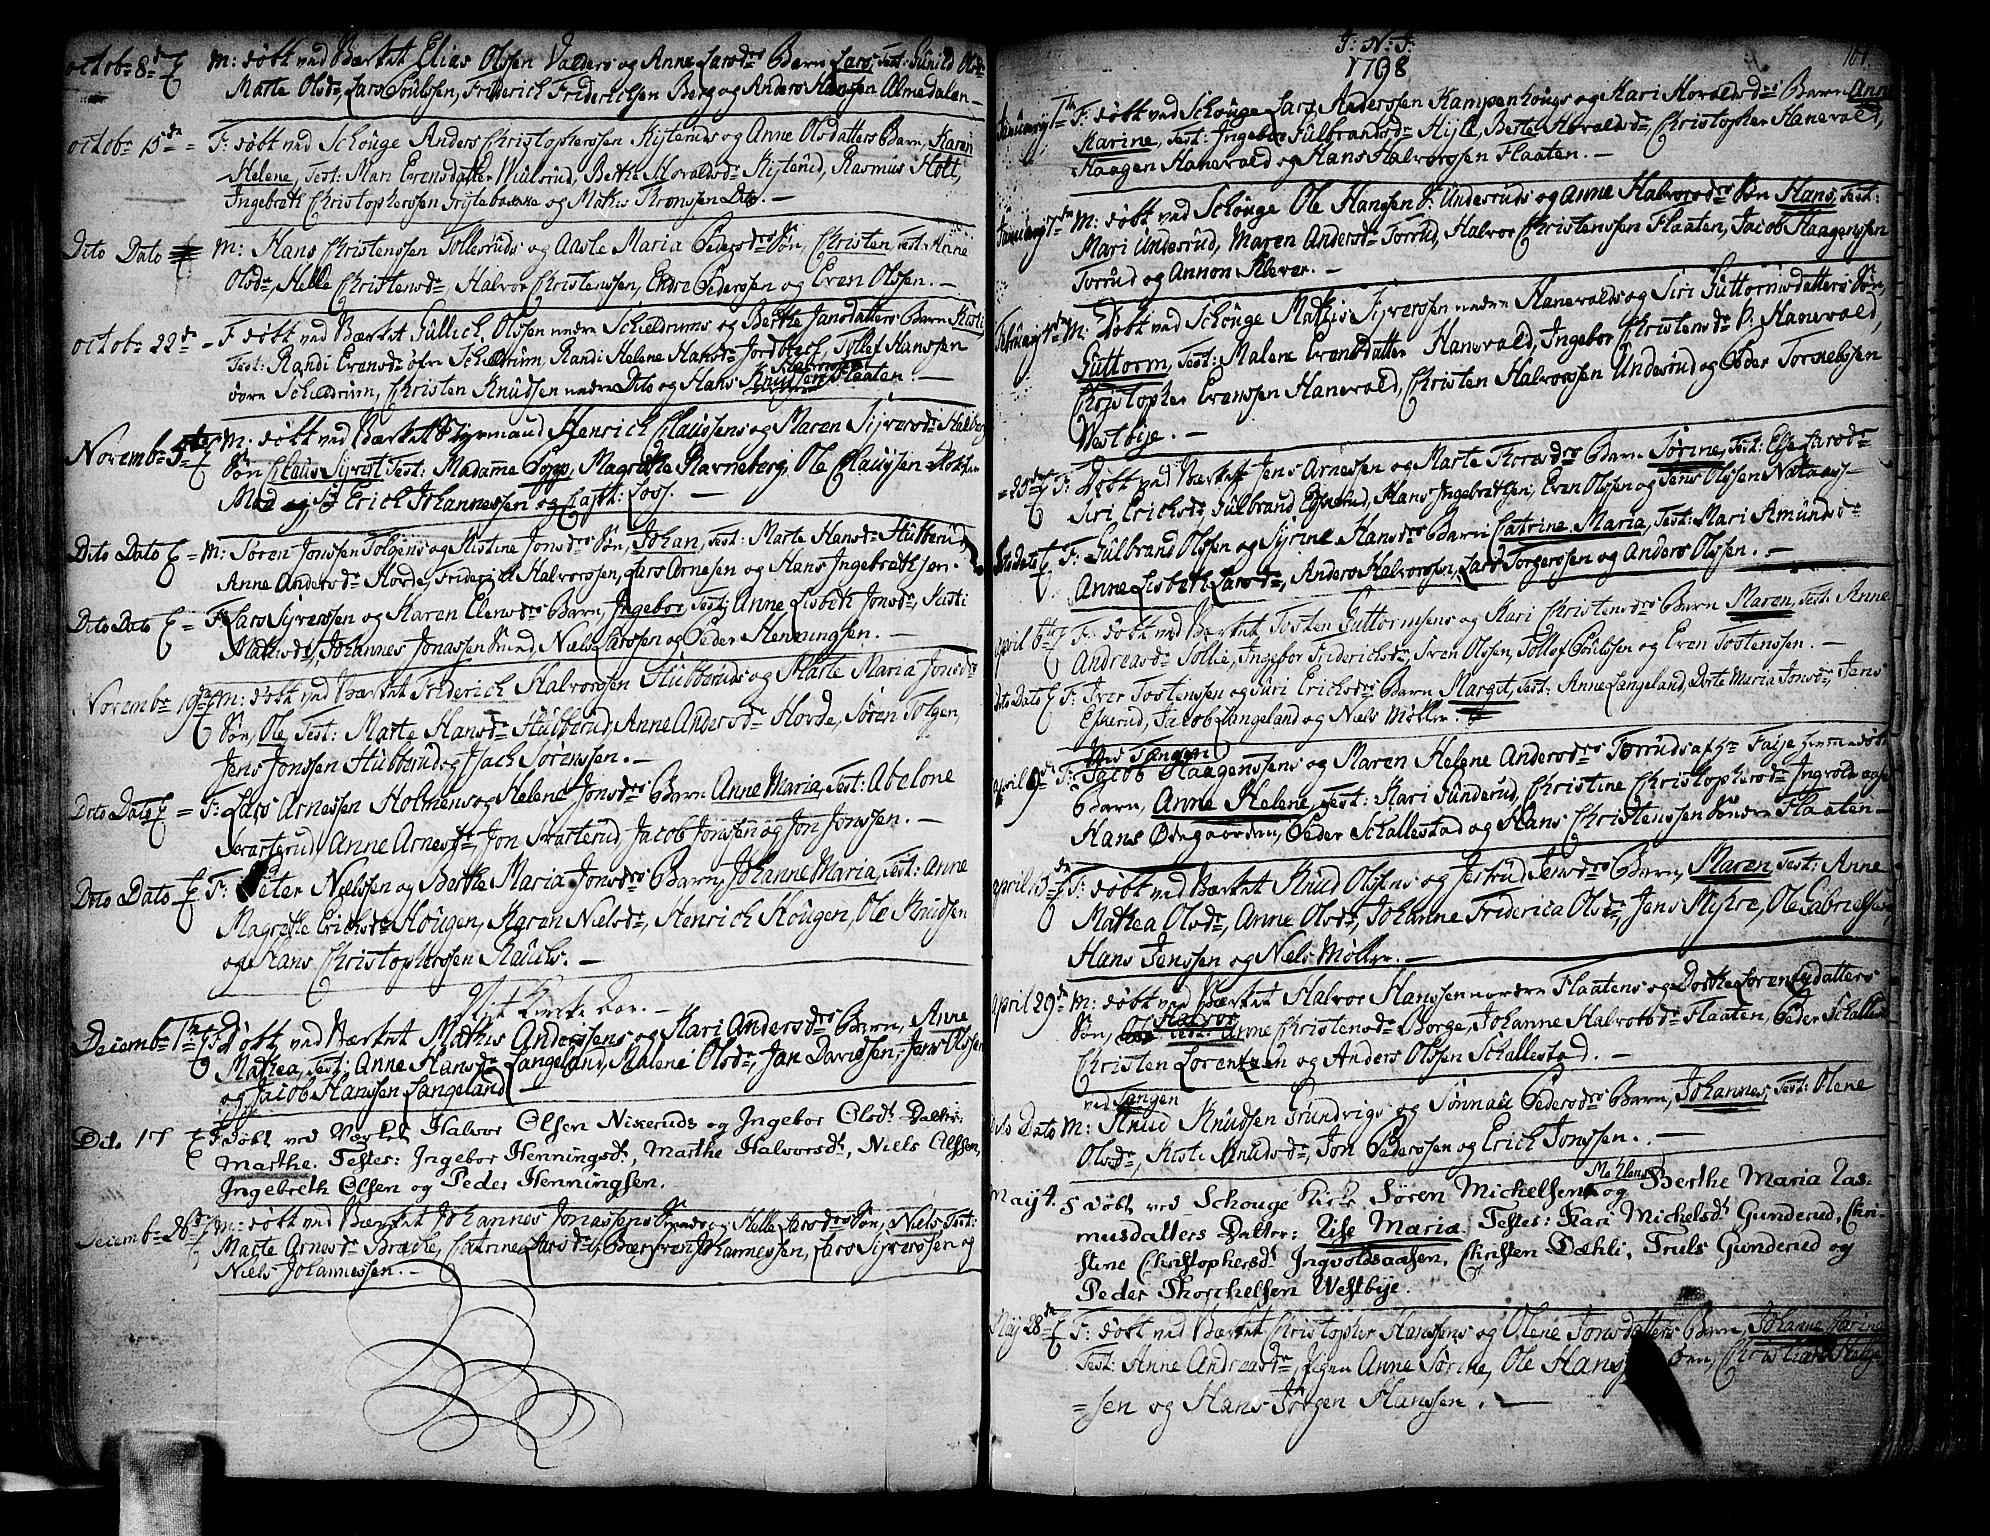 octobr 8de M: døbt ved Værket Elias Olssen Valders og Anne Larsdrs Barn Lars, Test: Gunild Olsdr
Marte Olsdr, Lars Poulssen, Friderich Friderichsen Berg og Anders Hansen Almedalen —
octobr 15de = F: døbt ved Schouge Anders Christopherssen Kijteruds og Anne Olsdatters Barn, Karen
Helene, Test: Mari Evensdatter Wiulsrud, Berthe Horalsdr Kijterud, Rasmus Holt,
Ingebreth Christopherssen Grijtebakke og Matis Thronssen Dito. —
Dito Dato M: Hans Christenssen Tollerüds og Aasle Maria Pedersdrs Søn, Christen, Test: Anne
Olsdr, Helle Christensdr, Halvor Christenssen, Endre Pederssen og Even Olssen. —
octobr 22de – F døbt ved Værket Gullich Olssen nedre Schieldrums og Berthe Jansdatters Barn Kisti,
Test: Randi Evensdr øfre Schieldrum, Randi Helene Hansdr Jordbræk, Tollef Hanssen
øvre Schieldrüm, Christen Knüdsen nedre Dito og Hans Halvorssen Flaaten. —
Novembr 5te M: døbt ved Værket Styrmand Henrich Claussens og Maren Sijversdr Halberg
Søn Claus Sijvert Test: Madame Sopp, Magrethe Ravneberg, Ole Claussen
og Sr Erich Johannessen og Capt: Loss. —
Dito Dato = M: Søren Jonssen Tolgens og Kistine Jonsdrs Søn, Johan, Test: Marte Hansdr Hübberüd,
Anne Andersdr Horde, Friderich Halvorssen, Lars Arnesen og Hans Ingebrethsen.
Dito Dato = F: Lars Sijverssen og Karen Elensdrs Barn, Ingebor, Test: Anne Lisbeth Jonsdr, Kisti
Mathisdr, Johannes Jonassen Lund, Niels Larssen og Peder Henningsen. —
Novembr 19de M: døbt ved Værket Friderich Halvorssen Hübberüds og Marte Maria Jonsdr
Søn, Ole, Test: Marte Hansdr Hübberud, Anne Andersdr Horde, Søren Tolgen,
Jens Jonssen Hübberüd og Isach Sørenssen. —
Dito Dato = F: Lars Arnessen Holmens og Helene Jonsdrs Barn Anne Maria, Test: Abelone
Svarterud, Anne Arnesdr, Jon Svarterud, Jacob Jonssen og Jon Jonssen. —
Dito Dato F: Peter Nielssen og Berthe Maria Jonsdrs Barn, Johanne Maria, Test: Anne
Magrethe Ericksdr Hougen, Karen Nielsdr, Henrich Hougen, Ole Knüdsen
og Hans Christopherssen Rauchs. —
Nyt Kirke Aar.
Decembr 1ste F: døbt ved Værket Mathis Anderssens og Kari Andersdrs Barn, Anne
Mathea, Test: Anne Hansdr Langeland, Malene Olsdr, Jan Davidssen, Jens Olssen
og Jacob Hanssen Langeland. —
Dito 17 F: døbt ved Værket Halvor Olsen Nixeruds og Ingebor Olsdr Datter:
Marthe. Testes: Ingebor Henningsdr, Marthe Halvorsdr, Niels Olssen,
Ingebreth Olsen og Peder Henningsen.
Decembr 26de M: døbt ved Værket Johannes Jonassens og Helle Larsdrs Søn, Niels Test:
Marte Arnesdr Bræche, Catrine Larsdr, Even Johannessen, Lars Sijverssen og
Niels Johannessen. —
J: N: J:
1798
101.
Januarij 1ste F: døbt ved Schouge Lars Anderssen Kampenhougs og Kari Horalsdrs Barn Anne
Karine, Test: Ingebor Gulbrandsdr Hijtl, Berte Horaldsdr, Christopher Hanevald,
Haagen Hanevald og Hans Halvorssen Flaaten. —
Januarij 7de M: døbt ved Schouge Ole Hanssen P: Underuds og Anne Halvorsdrs Søn Hans, Test:
Mari Underud, Maren Andersdr Torrud, Halvor Christenssen Flaaten, Jacob Haagenssen
Torrud og Annon Klever. —
Febrüarij 4de M: Døbt ved Schouge Mathis Sijverssen nedre Hanevalds og Siri Guttormsdatters Søn,
Guttorm, Test: Malene Evensdatter Hanevald, Ingebor Christensdr P: Hanevald,
Christopher Evenssen Hanevald, Christen Halvorssen Underüd og Peder Torkelssen
Westbije. —
= 25de F: Døbt ved Værket Jens Arnessen og Marte Thoresdrs Barn Sørine, Test: Else Larsdr
Siri Erichsdr, Gulbrand Eskerud, Hans Ingebrethsen, Even Olssen og Jens Olssen
Dito Dato F: Gulbrand Olssen og Sijrine Hansdrs Barn Catrine Maria, Test: Mari Amündsdr
Anne Lisbeth Larsdr, Anders Halvorssen, Lars Torgerssen og Anders Olssen. —
april 6te F: døbt ved Værket Tosten Guttormsens og Kari Christensdrs Barn Maren, Test: Anne
Andreasdr Tollie, Ingebor Friderichsdr, Sven Olssen, Tollof Poulssen og Even Tostenssen. —
Dito Dato F: Iver Tostenssen og Siri Erichsdrs Barn Margit, Test: Anne Langeland, Dorte Maria Jonsdr, Jens
Eskerud, Jacob Langeland og Niels Møller.
ved Tangen
april 9de F: Jacob Haagenssens og Maren Helene Andersdrs Torruds af Hr Faije hiemmedøbt
Barn, Anne Helene, Test: Kari Gunderud, Christine Christophersdr Ingvoldsaasen
Hans Ødegaarden, Peder Schallestad og Hans Christenssen søndre Flaaten —
april 15de F: døbt ved Værket Knud Olssens og Jertrud Jensdrs Barn, Maren, Test: Anne
Mathea Olsdr, Anne Olsdr, Johanne Friderica Olsdr, Jens Mijhre, Ole Gabrielssen
Hans Jenssen og Niels Møller. —
april 29de M: døbt ved Værket Halvor Hanssen nordre Flaatens og Dorthe Lorentzdatters
Søn, Halvor Test: Anne Christensdr Borge, Johanne Halvorsdr Flaaten, Peder Schallestad
Christen Lorentzen og Anders Olssen Schallestad. —
ved Tangen
Dito Dato M: Knud Knudsen Grundvigs og Sønnau Pedersdrs Barn, Johannes, Test: Olene
Olsdr, Kisti Knüdsdr, Jon Pederssen og Erich Jonssen. —
Maij 4. F døbt ved Schouge Kirke Søren Michelsens Mehlens og Berthe Maria Ras-
musdatters Datter: Lise Maria. Testes: Kari Michelsdr Gunderud, Chri-
stine Christophersdr Ingvoldsaasen, Christen Dæhli, Truls Gunderud og
Peder Thorchelsen Westbije.
Maij 28de F: døbt ved Værket Christopher Hanssens og Olene Jonsdatters Barn, Johanne Karine
Test: Anne Andreasdr, Pigen Anne Sørine, Ole Hans søn, Christian
= sen og Hans Jørgen Hanssen. —